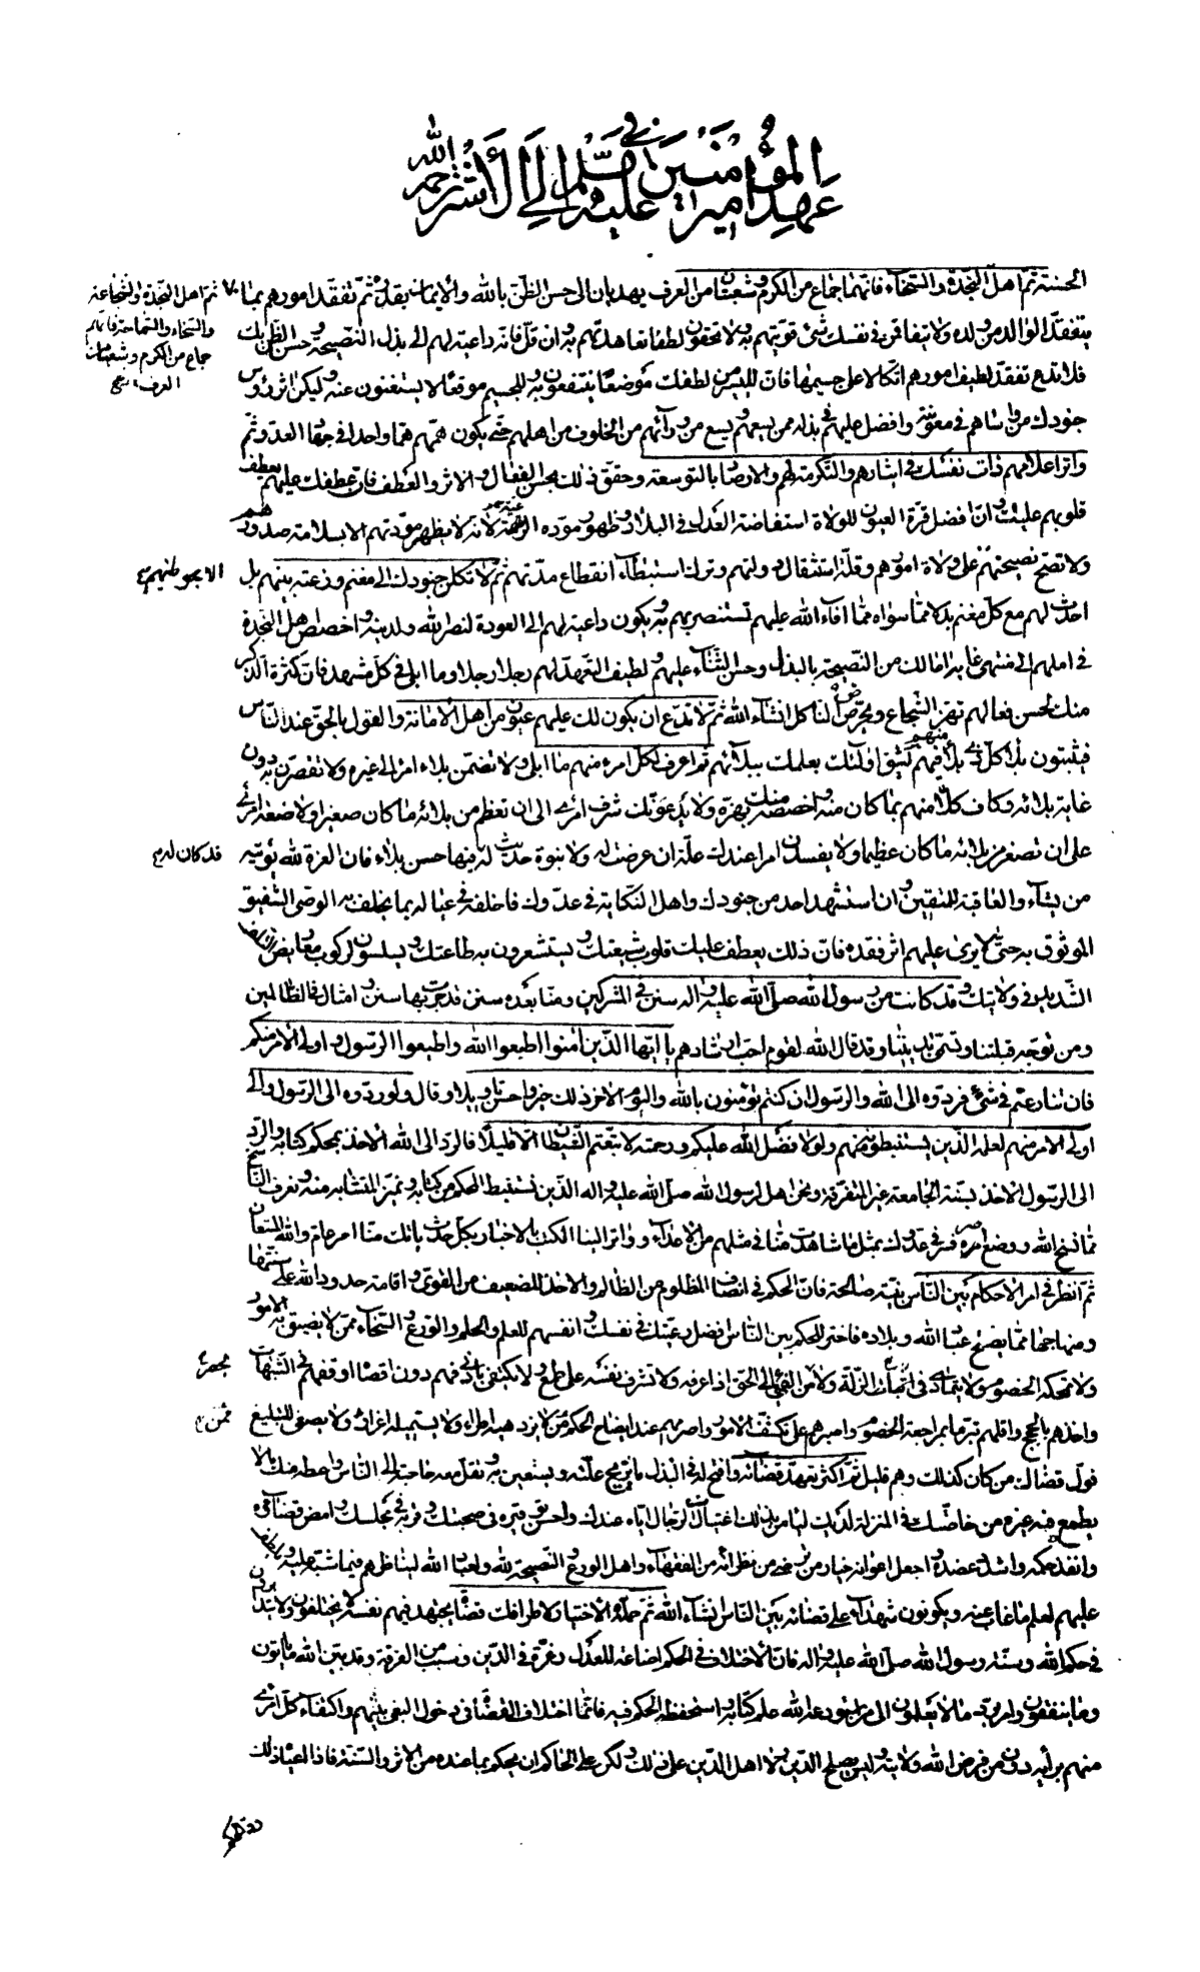 عهد أمير المؤمنين عليه السلم الى الأشتر رحمه الله
الحسنة ثم اهل النجدة والسخاء فانهما جماع من الكرم وشعبتان من العرف يهديان الى حسن الظن بالله والايمان بقدره ثم تفقد امورهم بما
يتفقد الوالد من ولده ولا يتفاقمن في نفسك شئ قويتهم به ولا تحقرن لطفا تعاهدتهم به وان قل فانه داعية لهم الى بذل النصيحة وحسن الظن بك
فلا تدع تفقد لطيف امورهم اتكالا على جسيمها فان لليسير من لطفك موضعا ينتفعون به وللجسيم موقعا لا يستغنون عنه وليكن اثر رؤس
جنودك من واساهم في معونته وافضل عليهم في بذله ممن يسعهم ويسع من ورائهم من الخلوف من اهلهم حتى يكون همهم هما واحدا في جهاد العدو ثم
واتر اعلامهم ذات نفسك في ايثارهم والتكرمة لهم والارصاد بالتوسعة وحقق ذلك بحسن الفعال والاثر والعطف فان عطفك عليهم يعطف
قلوبهم عليك وان افضل قرة العيون للولاة استفاضة العدل في البلاد وظهور مودة الرعية لانه لا يظهر مودتهم الا بسلامة صدورهم
ولا تصح نصيحتهم على ولاة امورهم وقلة استثقال دولتهم وترك استبطاء انقطاع مدتهم ثم لا تكلن جنودك الى مغنم وزعته بينهم بل
احدث لهم مع كل مغنم بدلا مما سواه مما افاء الله عليهم تستنصر بهم به ويكون داعية لهم الى العودة لنصر الله ولدينه واخصص اهل النجدة
في املهم الى منتهى غاية امالك من النصيحة بالبذل وحسن الثناء عليهم ولطيف التعهد لهم رجلا رجلا وما ابلى في كل مشهد فان كثرة الذكر
منك لحسن فعالهم تهز الشجاع وتحرض الناكل انشاء الله ثم لا تدع ان يكون لك عليهم عيون من اهل الامانة والقول بالحق عند الناس
فيثبتون بلاء كل ذي بلاء منهم ليثق اولئك بعلمك ببلائهم ثم اعرف لكل امرء منهم ما ابلى ولا تضمن بلاء امرء الى غيره ولا تقصرن به دون
غاية بلائه وكاف كلا منهم بما كان منه واخصصه منك بهزة ولا يدعونك شرف امرء الى ان تعظم من بلائه ما كان صغيرا ولا ضعة امرء
على ان تصغر من بلائه ما كان عظيما ولا يفسدن امرا عندك علة ان عرضت له ولا نبوة حديث له فيها حسن بلاء فان العزة لله يؤتيه
من يشاء والعاقبة للمتقين وان استشهد احد من جنودك واهل النكاية في عدوك فاخلفه في عياله بما يخلف به الوصى الشفيق
الموثوق به حتى لا يرى عليهم اثر فقده فان ذلك يعطف عليك قلوب شيعتك ويستشعرون به طاعتك ويسلسون لركوب معاريض التلف
الشديد في ولايتك وقد كانت من رسول الله صلى الله عليه واله سنن في المشركين ومنا بعده سنن قد جرت بها سنن وامثال في الظالمين
ومن توجه قبلتنا وتسمى بديننا وقد قال الله لقوم احب ارشادهم يا ايها الذين امنوا اطيعوا الله واطيعوا الرسول واولى الامر منكم
فان تنازعتم في شئ فردوه الى الله والرسول ان كنتم تؤمنون بالله واليوم الاخر ذلك خير واحسن تاويلا وقال ولو ردوه الى الرسول والى
اولى الامر منهم لعلمه الذين يستنبطونه منهم ولولا فضل الله عليكم ورحمته لاتبعتم الشيطان الا قليلا فالرد الى الله الاخذ بمحكم كتابه والرد
الى الرسول الاخذ بسنته الجامعة غير المتفرقة ونحن اهل رسول الله صلى الله عليه واله الذين نستنبط المحكم من كتابه ونميز المتشابه منه ونعرف الناسخ
مما نسخ الله ووضع اصره فسر في عدوك بمثل ما شاهدت منا في مثلهم من الاعداء وواتر الينا الكتب بالاخبار بكل حدث ياتك منا امر عام والله المستعان
ثم انظر في امر الاحكام بين الناس بنية صالحة فان الحكم في انصاف المظلوم من الظالم والاخذ للضعيف من القوى واقامة حدود الله على سنتها
ومنهاجها مما يصلح عباد الله وبلاده فاختر للحكم بين الناس افضل رعيتك في نفسك وانفسهم للعلم والحلم والورع والسخاء ممن لا يضيق به الامور
ولا تمحكه الخصوم ولا يتمادى في اثبات الزلة ولا من الفئ الى الحق اذا عرفه ولا تشرف نفسه على طمع ولا يكتفى بادنى فهم دون اقصاه اوقفهم في الشبهات
واخذهم بالحجج واقلهم تبرما بمراجعة الخصوم واصبرهم على تكشف الامور واصرمهم عند ايضاح الحكم ممن لا يزدهيه اطراء ولا يستميله اغراق ولا يصغى للتبليغ
فول قضاك من كان كذلك وهم قليل ثم اكثر تعهد قضائه وافتح له في البذل ما يزيح علته ويستعين به وتقل معه حاجته الى الناس واعطه منك مالا
يطمع فيه غيره من خاصتك في المنزلة لديك ليامن بذلك اغتيال الرجال اياه عندك واحسن توقيره في صحبتك وقربه في مجلسك وامض قضائه
وانفذ حكمه واشدد عضده واجعل اعوانه خيار من ترضى من نظرائه من الفقهاء واهل الورع والنصيحة لله ولعباد الله ليناظرهم فيما شبه عليه ويلطف
عليهم لعلم ما غاب عنه ويكونون شهداء على قضائه بين الناس انشاء الله ثم حملة الاختيار لاطرافك قضاة يجتهد فيهم نفسه لا يختلفون ولا يتدابرون
في حكم الله وسنة رسول الله صلى الله عليه واله فان الاختلاف في الحكم اضاعة للعدل وغرة في الدين وسبب من الفرقة وقد بين الله ما ياتون
وما ينفقون وامر برد ما لا يعلمون الى من استودعه الله علم كتابه واستحفظه الحكم فيه فانما اختلاف القضاة في دخول البغى بينهم واكتفاء كل امرء
منهم برأيه دون من فرض الله ولايته وليس يصلح الدين ولا اهل الدين على ذلك ولكن على الحاكم ان يحكم بما عنده من الاثر والسنة فاذا اعياه ذلك
ثم اهل النجدة والشجاعة
والسخاء والسماحة فانهم
جماع من الكرم وشعب من
العرف نهج
الا بحيطتهم نهج
قد كان له
ممن
رد